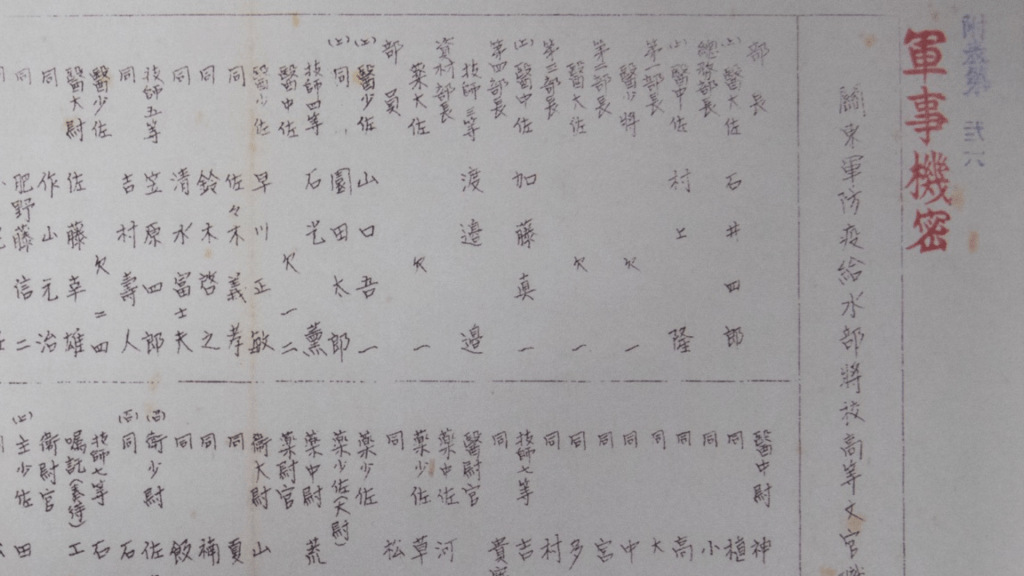 軍事機密
關東軍防疫給水部將校高等文官職
部長
醫大佐 石井四郎
總務部長
醫中佐 村上隆
第一部長
醫少將 欠一
第二部長
醫大佐 欠一
第三部長
醫中佐 加藤真一
第四部長
技師三等 渡邉邉
資材部長
藥大佐 欠一
部員
醫少佐 山口吾一
同 園田太郎
技師四等 石光薫
醫中佐 欠一二
醫少佐 早川正敏
同 佐々木義孝
同 鈴木啓之
同 清水富士夫
技師五等 笠原四郎
同 吉村壽人
醫少佐 欠二四
醫大尉 佐藤幸雄
同 作山元治
同 肥野藤信二
醫中尉 神
同 植
同 小
同 高
同 大
同 中
同 宮
同 多
同 村
技師七等 吉
同 貴
醫尉官
藥中佐 河
藥少佐 草
同 松
藥少佐
藥少佐(大尉)
藥中尉 荒
藥尉官
衛大尉 山
同 夏
同 楠
同 飯
衛少尉 佐
同 石
技師七等 石
囑託(奏待) 工
衛尉官
主少佐 田